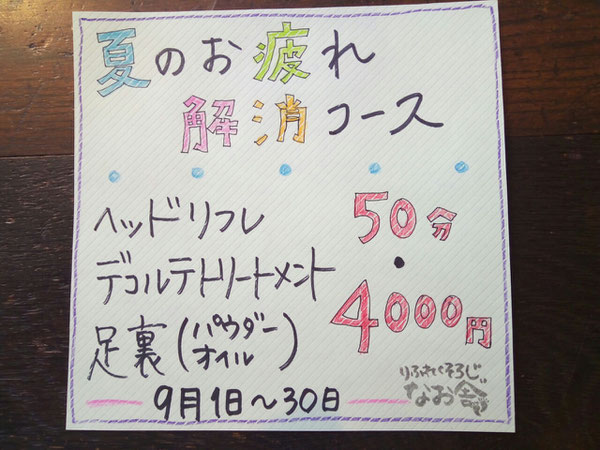 夏のお疲れ
解消コース
ヘッドリフレ
デコルテトリートメント
足裏(パウダー
オイル)
50分
・
4000円
りふれくそろじぃ
なお舎
9月1日〜30日